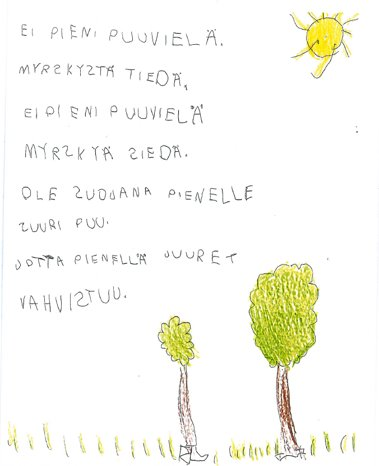 EI PIENI PUUVIELÄ.
MYRSKYSTÄ TIEDÄ,
EIPIENI PUUVIELÄ
MYRSKYÄ SIEDÄ.
OLE SUOJANA PIENELLE
SUURI PUU.
JOTTA PIENELLÄ JUURET
VAHVISTUU.